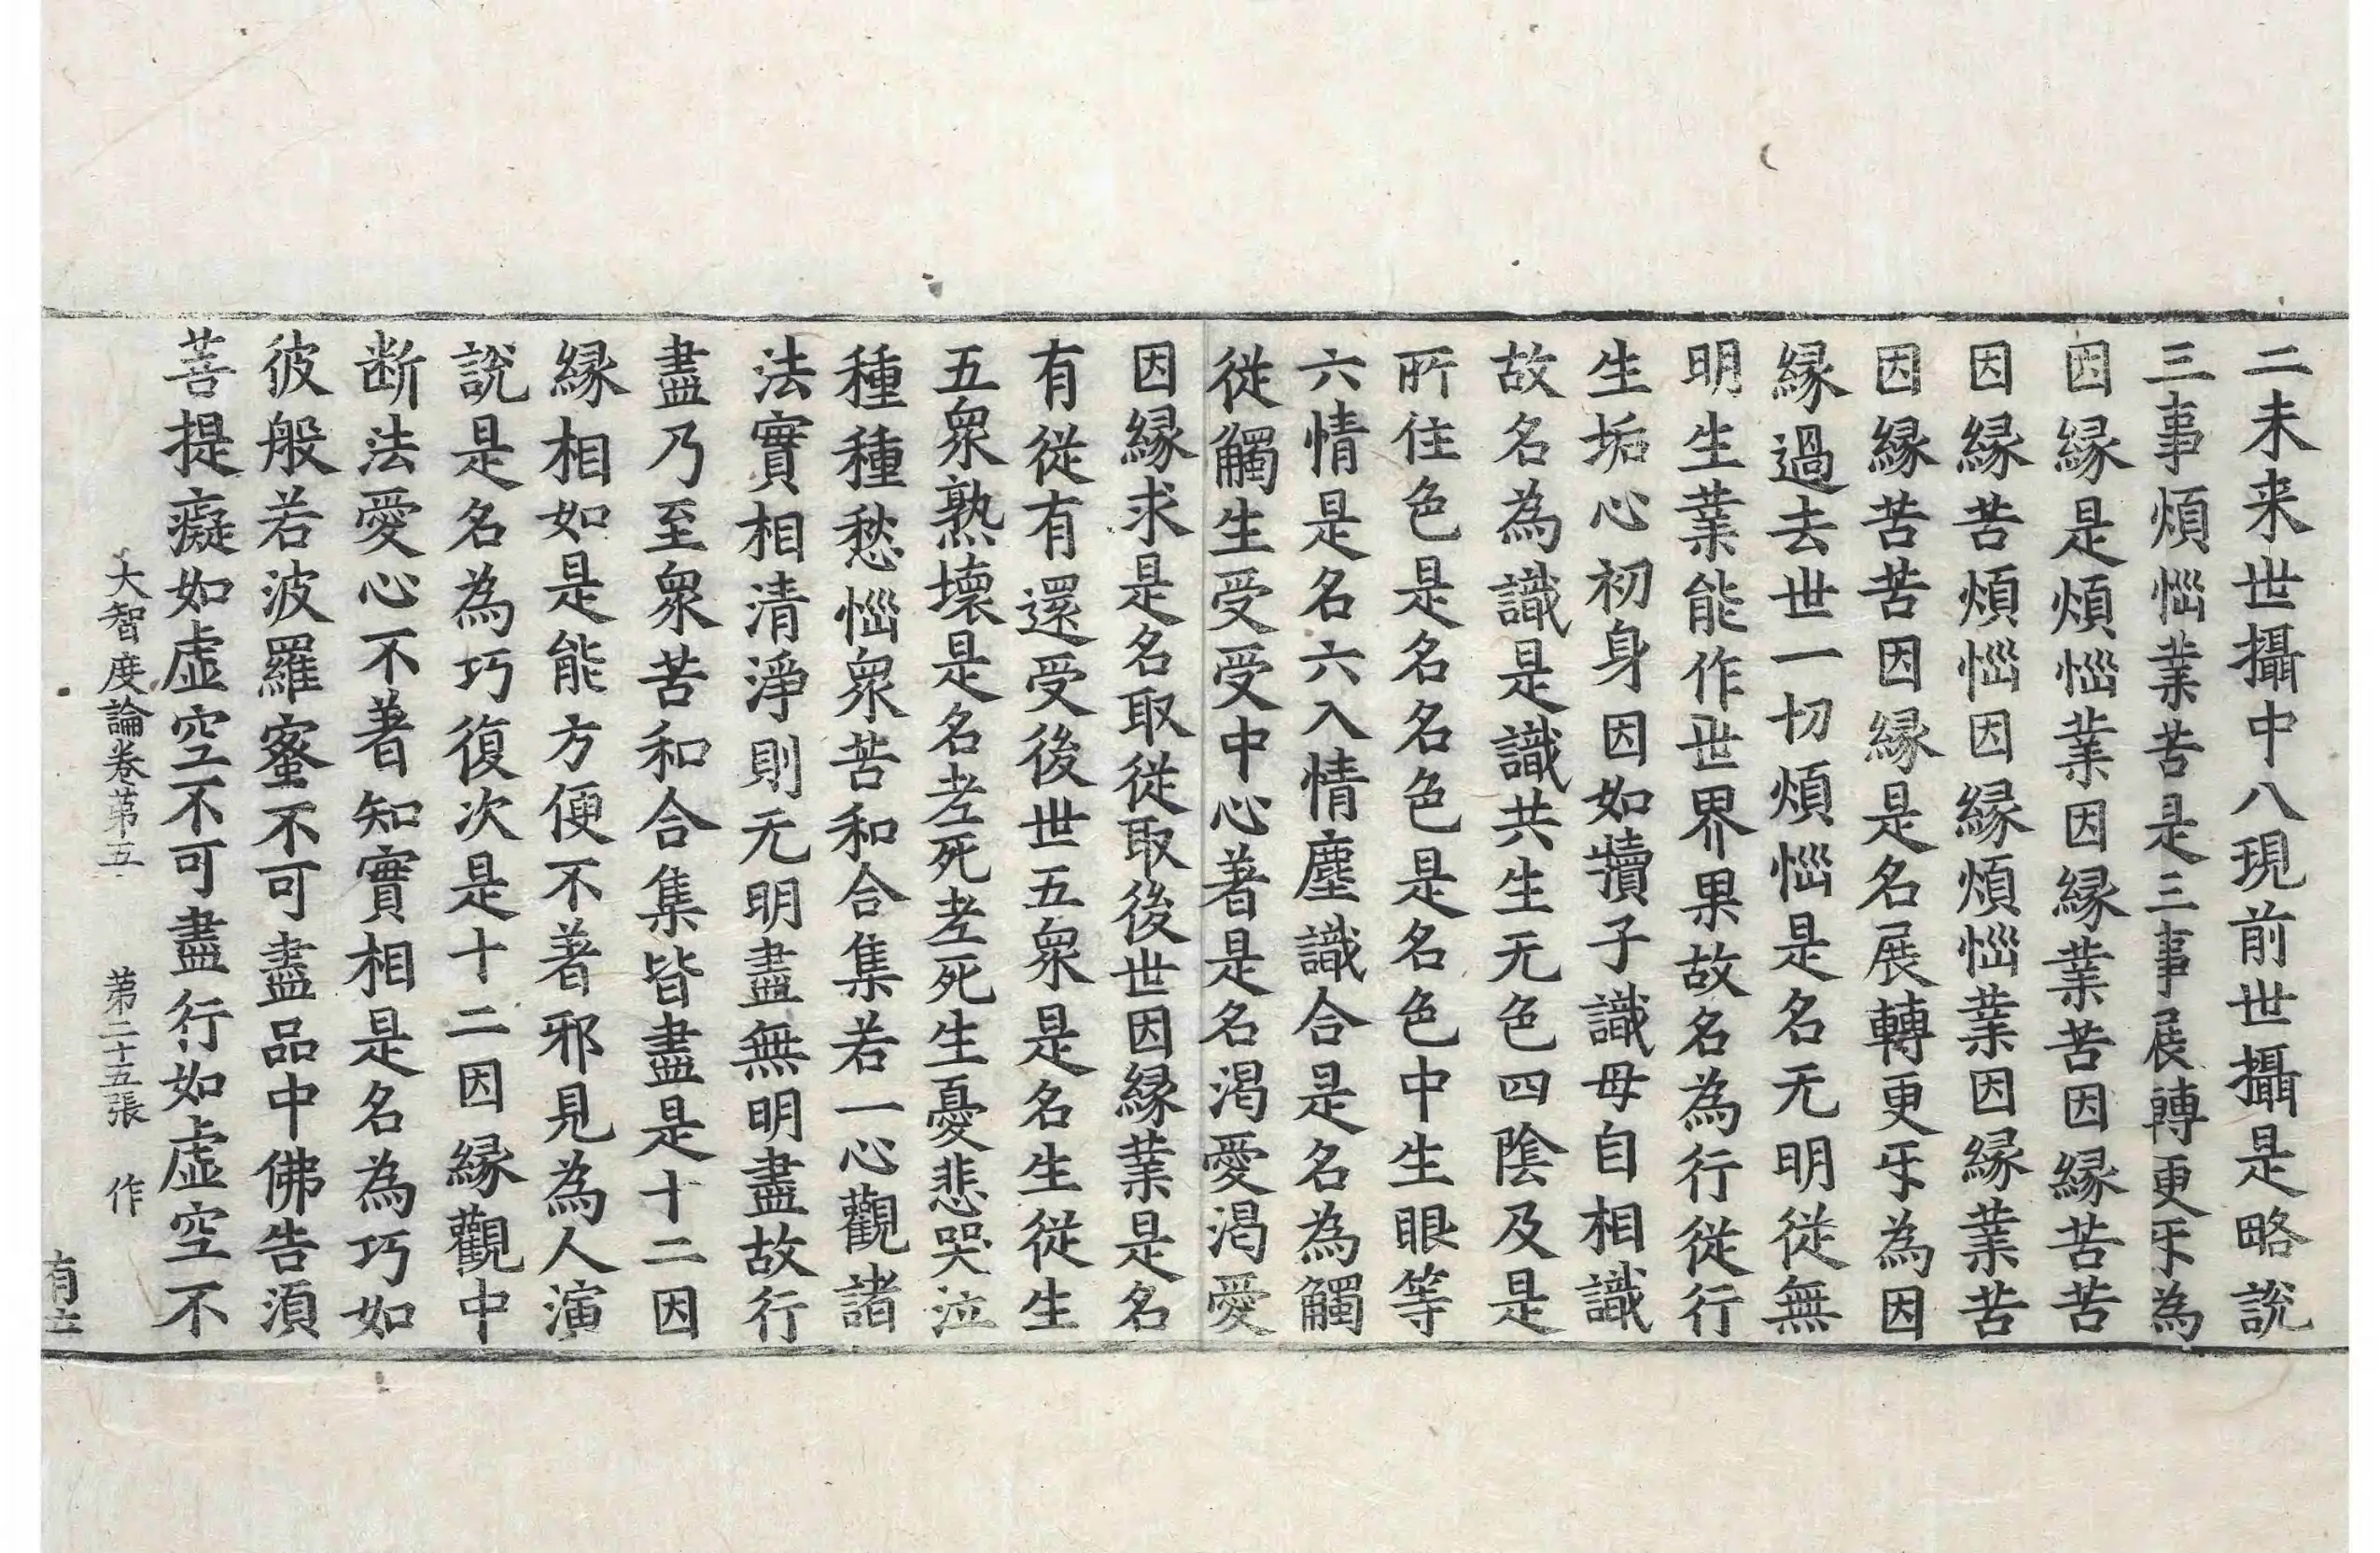 二未来世攝中八現前世攝是略說
三事煩惱業苦是三事展轉更㸦為
因緣是煩惱業因緣業苦因緣苦苦
因緣苦煩惱因緣煩惱業因緣業苦
因緣苦苦因緣是名展轉更㸦為因
緣過去世一切煩惱是名无明從無
明生業能作世界果故名為行從行
生垢心初身因如犢子識母自相識
故名為識是識共生无色四陰及是
所住色是名名色是名色中生眼等
六情是名六入情塵識合是名為觸
從觸生受受中心著是名渴愛渴愛
因緣求是名取從取後世因緣業是名
有從有還受後世五衆是名生從生
五衆熟壞是名老死老死生憂悲哭泣
種種愁惱衆苦和合集若一心觀諸
法實相清淨則无明盡無明盡故行
盡乃至衆苦和合集皆盡是十二因
緣相如是能方便不著邪見為人演
說是名為巧復次是十二因緣觀中
断法愛心不著知實相是名為巧如
彼般若波羅蜜不可盡品中佛告湏
菩提癡如虛空不可盡行如虛空不
大智度論卷第五　第二十五張　作